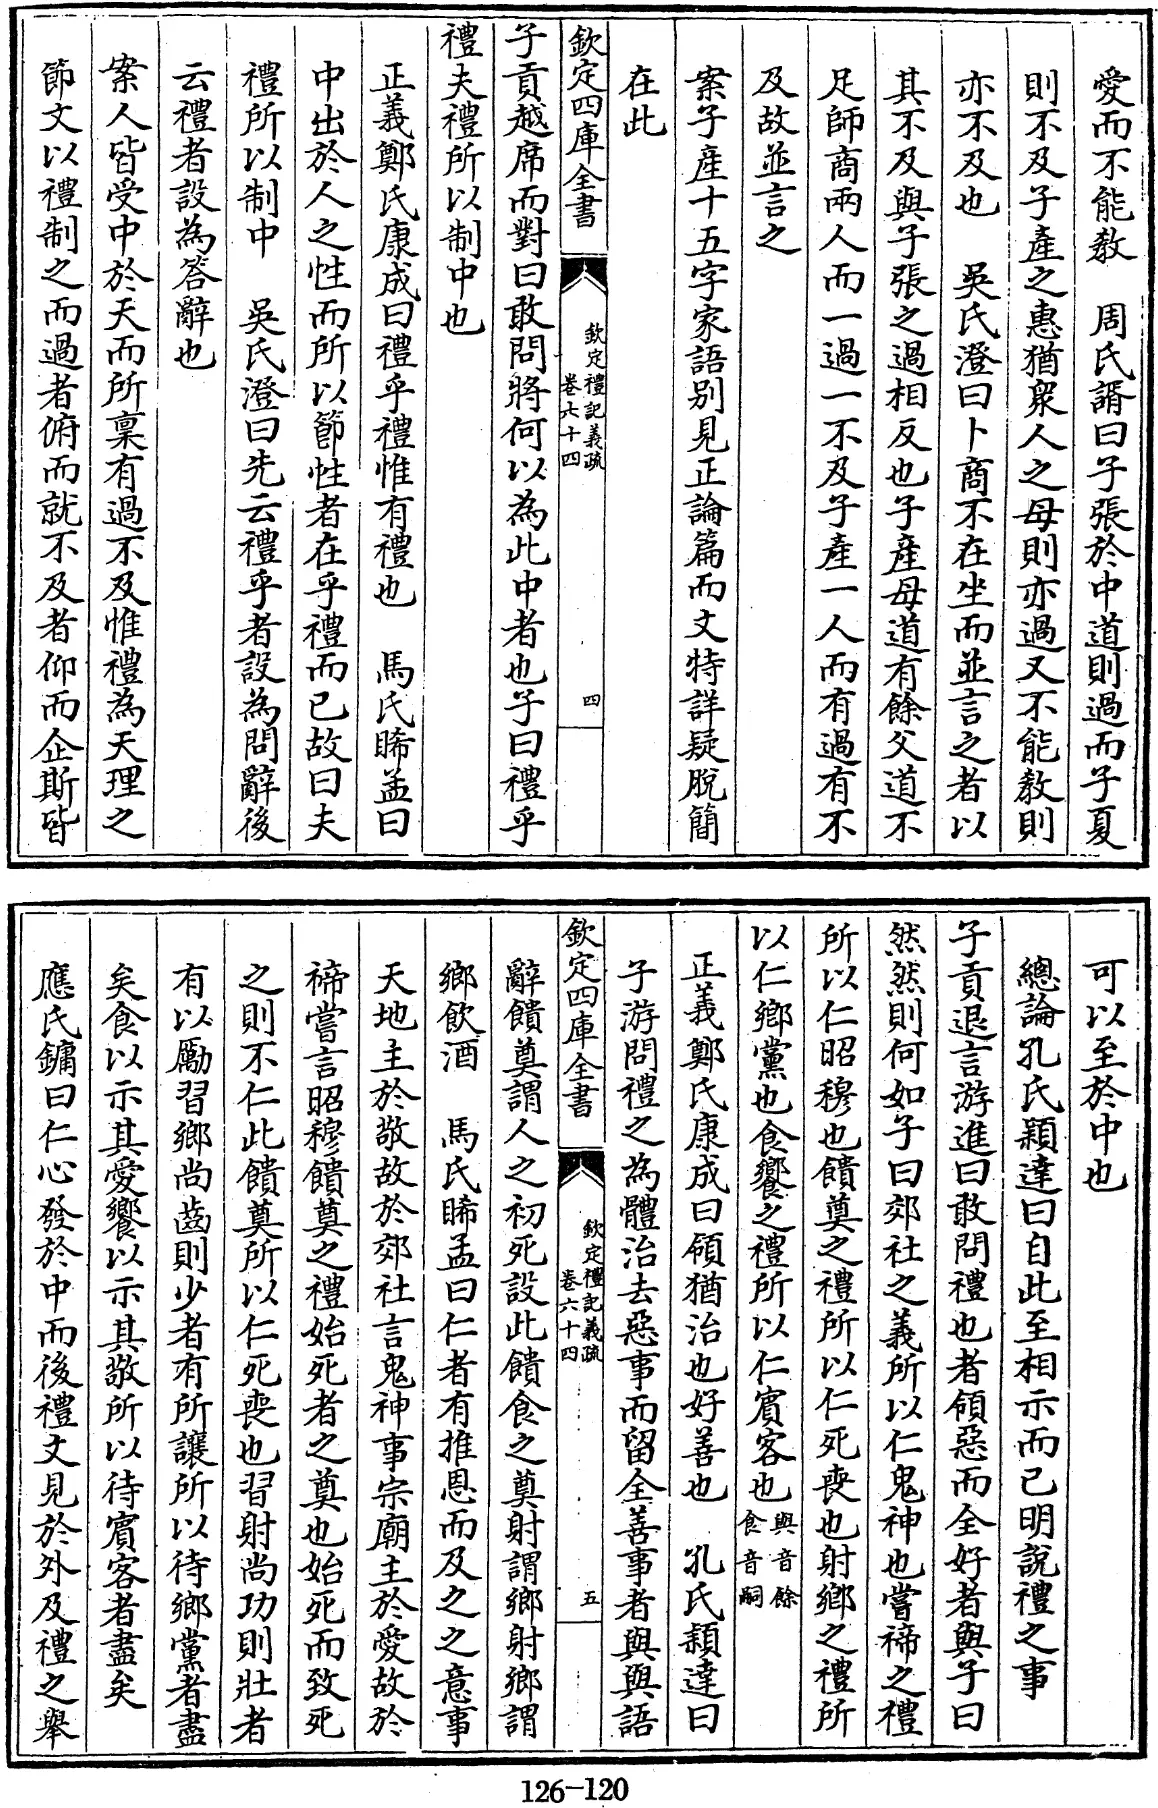 愛而不能教　周氏諝曰子張於中道則過而子夏
則不及子產之惠猶衆人之母則亦過又不能教則
亦不及也　吳氏澄曰卜商不在坐而並言之者以
其不及與子張之過相反也子產母道有餘父道不
足師商兩人而一過一不及子產一人而有過有不
及故並言之
案子產十五字家語别見正論篇而文特詳疑脫簡
在此
欽定四庫全書
欽定禮記義疏
卷六十四
四
子貢越席而對曰敢問將何以為此中者也子曰禮乎
禮夫禮所以制中也
正義鄭氏康成曰禮乎禮惟有禮也　馬氏睎孟曰
中出於人之性而所以節性者在乎禮而已故曰夫
禮所以制中　吳氏澄曰先云禮乎者設為問辭後
云禮者設為答辭也
案人皆受中於天而所稟有過不及惟禮為天理之
節文以禮制之而過者俯而就不及者仰而企斯皆
可以至於中也
總論孔氏穎達曰自此至相示而已明說禮之事
子貢退言游進曰敢問禮也者領惡而全好者與子曰
然然則何如子曰郊社之義所以仁鬼神也嘗禘之禮
所以仁昭穆也饋奠之禮所以仁死喪也射鄉之禮所
以仁鄉黨也食饗之禮所以仁賓客也與音餘食音嗣
正義鄭氏康成曰領猶治也好善也　孔氏穎達曰
子游問禮之為體治去惡事而留全善事者與與語
欽定四庫全書
欽定禮記義疏
卷六十四
五
辭饋奠謂人之初死設此饋食之奠射謂鄉射鄉謂
鄉飲酒　馬氏睎孟曰仁者有推恩而及之之意事
天地主於敬故於郊社言鬼神事宗廟主於愛故於
禘嘗言昭穆饋奠之禮始死者之奠也始死而致死
之則不仁此饋奠所以仁死喪也習射尚功則壯者
有以勵習鄉尚齒則少者有所讓所以待鄉黨者盡
矣食以示其愛饗以示其敬所以待賓客者盡矣
應氏鏞曰仁心發於中而後禮文見於外及禮之舉
126-120